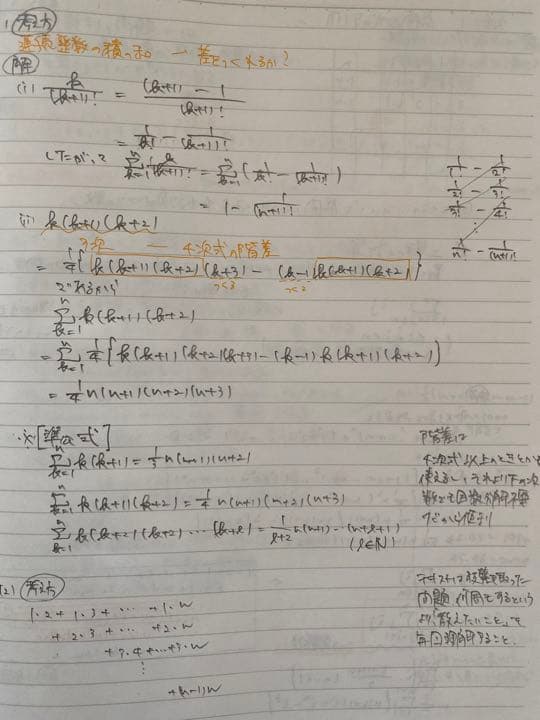 1. 考え方
連続整数の積の和 → 差をつくれるか?
解
(i) k/(k+1)! = (k+1) - 1/(k+1)!
= 1/k! - 1/(k+1)!
したがって
∑_{k=1}^{n} k/(k+1)! = ∑_{k=1}^{n} (1/k! - 1/(k+1)!)
= 1 - 1/(n+1)!
1/1! - 1/2!
1/2! - 1/3!
1/3! - 1/4!
⋮
1/n! - 1/(n+1)!
(ii) k(k+1)(k+2)
3次 — 4次式の階差
= 1/4{k(k+1)(k+2)(k+3) - (k-1)k(k+1)(k+2)}
であるから
∑_{k=1}^{n} k(k+1)(k+2)
= ∑_{k=1}^{n} 1/4{k(k+1)(k+2)(k+3) - (k-1)k(k+1)(k+2)}
= 1/4 n(n+1)(n+2)(n+3)
※[準公式]
∑_{k=1}^{n} k(k+1) = 1/3 n(n+1)(n+2)
∑_{k=1}^{n} k(k+1)(k+2) = 1/4 n(n+1)(n+2)(n+3)
∑_{k=1}^{n} k(k+1)(k+2)⋯(k+l) = 1/(l+2) n(n+1)⋯(n+l+1)
(l∈N)
階差は
4次式以上のときとかも
使えるし、それより下の次
数でも因数分解不要
だから便利
(2) 考え方
1・2 + 1・3 + ⋯ + 1・n
+ 2・3 + ⋯ + 2・n
+ 3・4 + ⋯ + 3・n
⋮
+ (n-1)n
問題
教えたいこと
毎回理解すること。